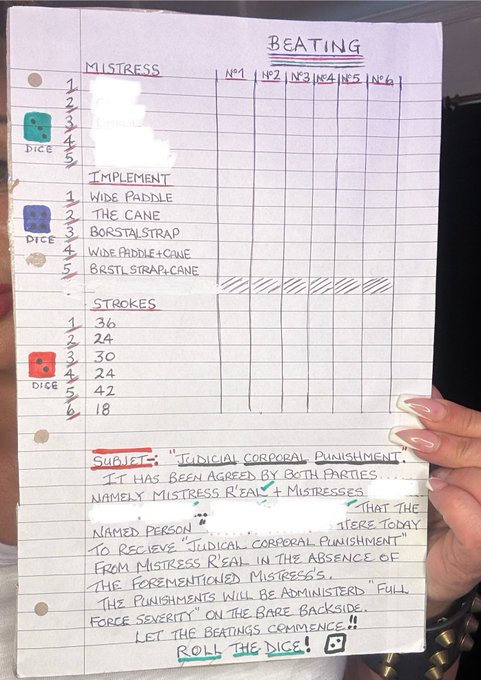 BEATING
MISTRESS Nº1 Nº2 Nº3 Nº4 Nº5 Nº6
1
2
3
4
5
DICE
IMPLEMENT
1 WIDE PADDLE
2 THE CANE
3 BORSTALSTRAP
4 WIDE PADDLE+CANE
5 BRSTL STRAP+CANE
DICE
STROKES
1 36
2 24
3 30
4 24
5 42
6 18
DICE
SUBJET-: "JUDICIAL CORPORAL PUNISHMENT."
IT HAS BEEN AGREED BY BOTH PARTIES
NAMELY MISTRESS R'EAL + MISTRESSES
THAT THE
NAMED PERSON : HERE TODAY
TO RECIEVE "JUDICAL CORPORAL PUNISHMENT"
FROM MISTRESS R'EAL IN THE ABSENCE OF
THE FOREMENTIONED MISTRESS'S.
THE PUNISHMENTS WILL BE ADMINISTERD "FULL
FORCE SEVERITY" ON THE BARE BACKSIDE.
LET THE BEATINGS COMMENCE!!
ROLL THE DICE!